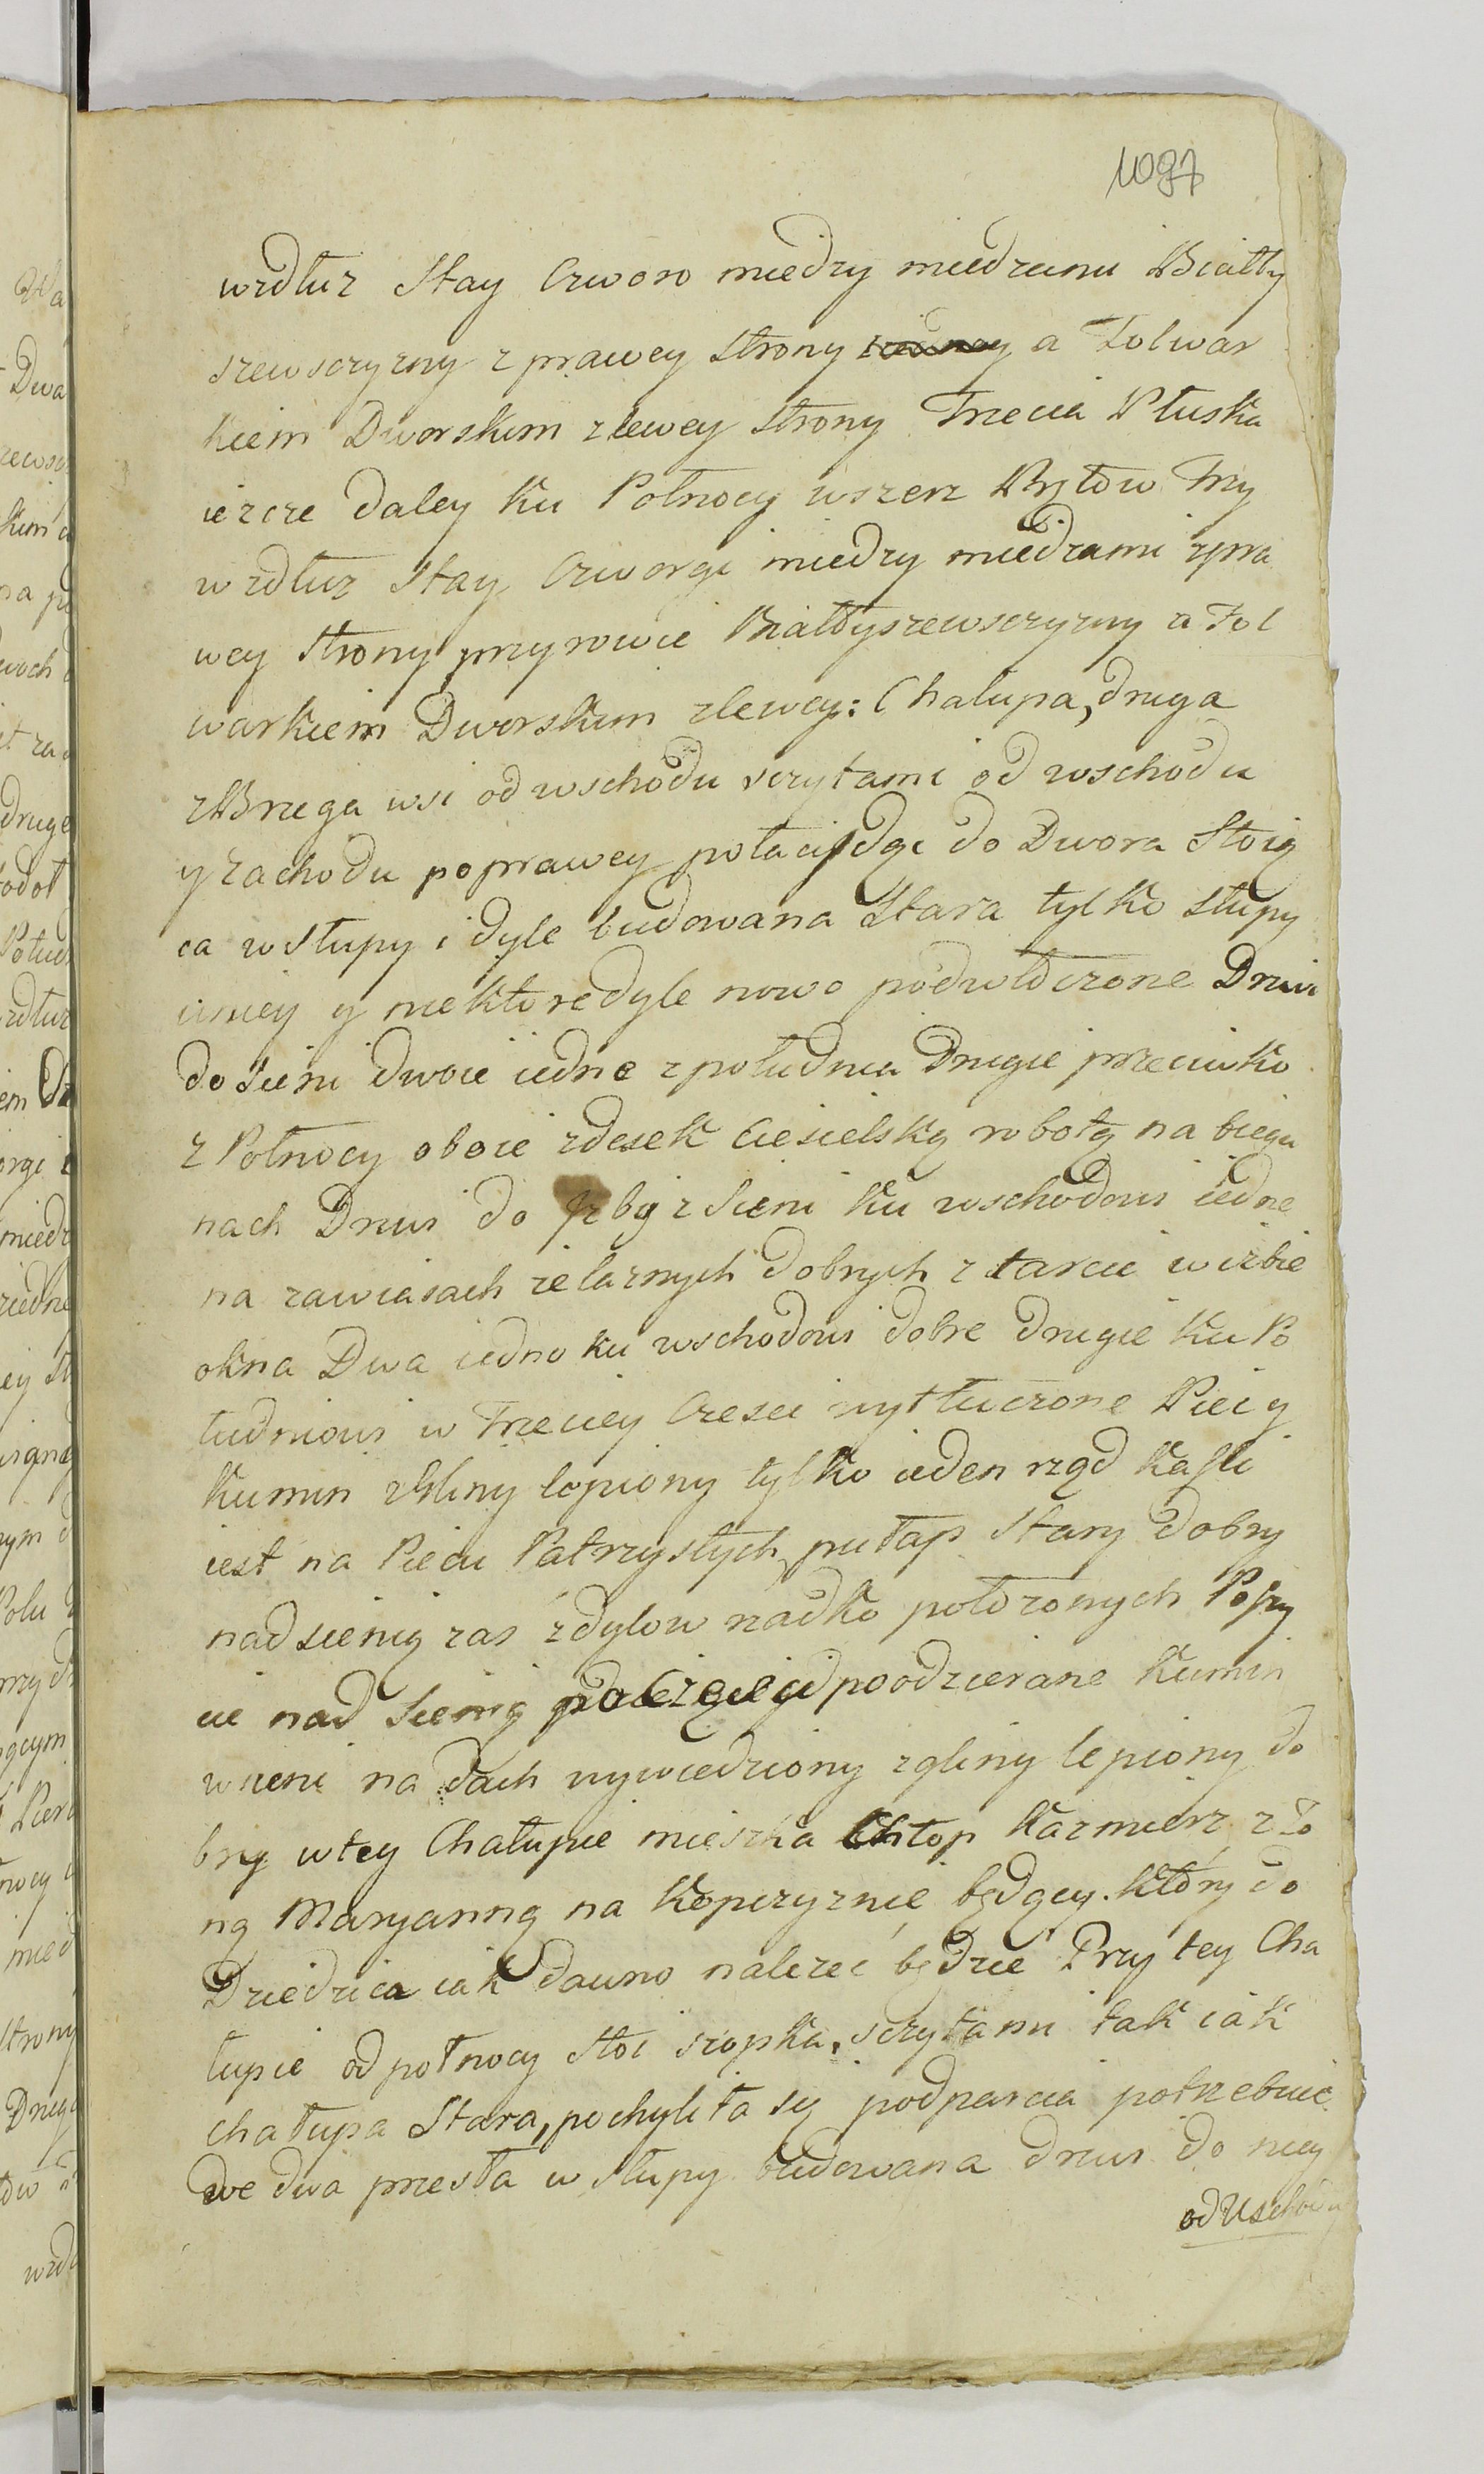 1097
wzdłuz Stay Czworo miedzy miedzemi Białły
szewszczyzny z prawey Strony a Folwar
kiem Dworskim z lewey Strony Trzecia Płuska
ieszcze daley ku Połnocy wszerz Prętow Trzy
wzdłuz Stay Czworga miedzy miedzami zpra
wey Strony przyrowie Białłyszewszczyzny a Fol
warkiem Dworskim zlewey: Chałupa, druga
z Brzega wsi od wschodu sczytami od wschodu
y zachodu po prawey połaci idąc do Dwora Stoią
ca w Słupy i dyle budowana Stara tylko słupy
u niey y niektore dyle nowo podwłóczone Drzwi
do Sieni dwoie iedne z południa Drugie przeciwko
z Połnocy oboie z desek Ciesielską robotą na biegu
nach Drzwi do Izby z Sieni ku wschodowi iedne
na zawiasach zelaznych dobrych z tarcic w izbie
okna Dwa iedno ku wschodowi dobre drugie ku Po
łudniowi w Trzeciey Czesci wytłuczone Piec y
Kumin z Gliny lepiony tylko ieden rząd kafli
iest na Piecu Patrzystych, pułap Stary dobry
nad sienią zas z dylow rzadko położonych Poszy
cie nad Sienią poodzierane Kumin
w sieni na dach wywiedziony z gliny lepiony do
bry w tey Chałupie mieszka Chłop Kazmierz z Żo
ną Maryanną na Kopczyznie będący. który do
Dziedzica iak dawno nalezeć będzie Przy tey Cha
łupie od połnocy stoi szopka, sczytami tak iak
chałupa Stara, pochyliła się podparcia potrzebuie
we dwa przesła w słupy budowana drzwi do niey
od Wschodu